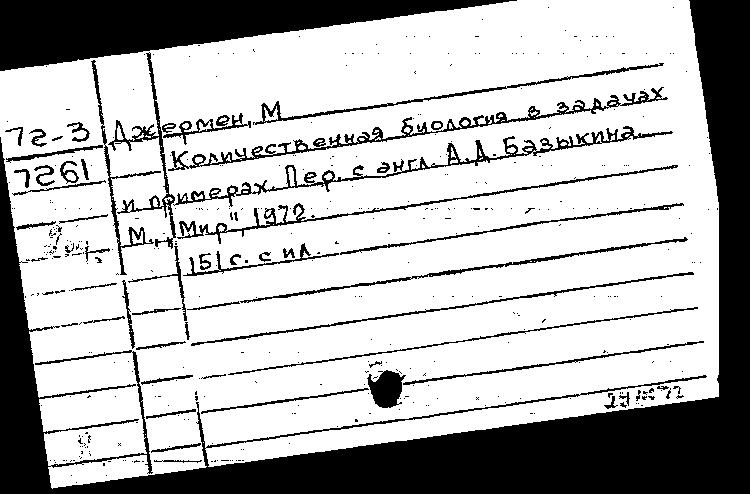 72-3
7261
Джермен, М
Количественная биология в задачах
и примерах. Пер. с англ. А.Д. Базыкина.
М., „Мир", 1972.
151 с. с ил.